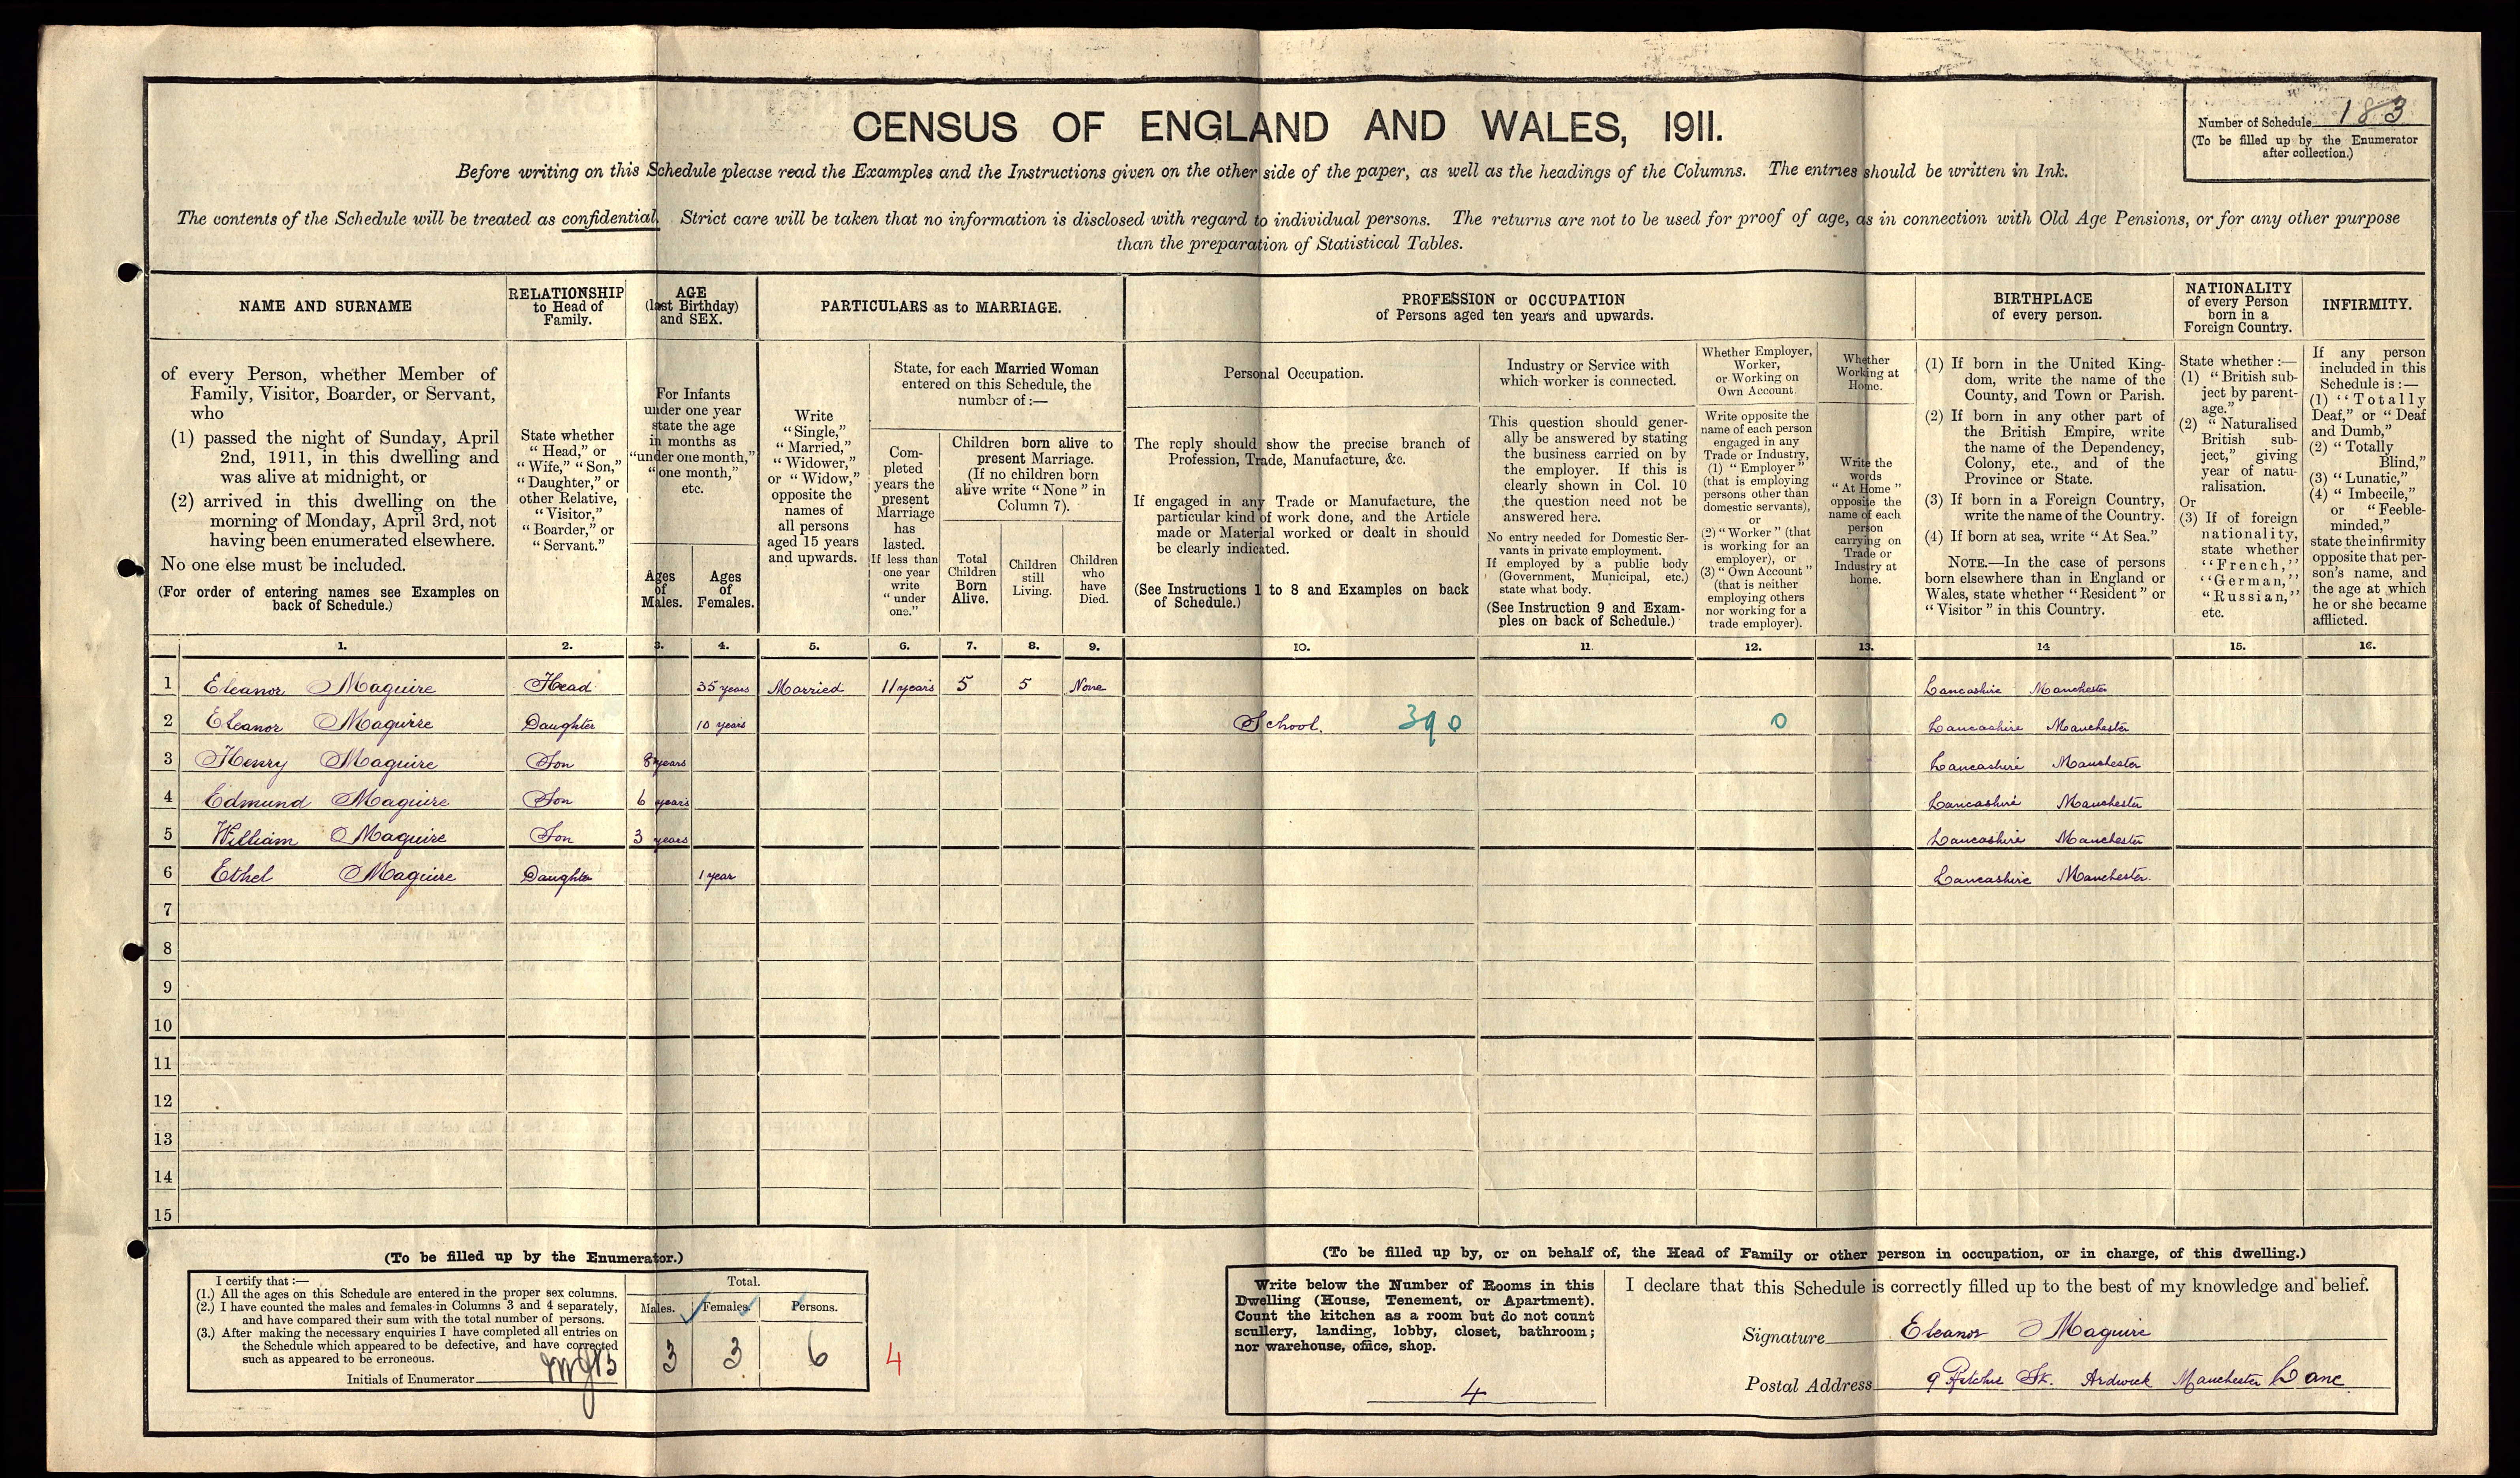 CENSUS OF ENGLAND AND WALES, 1911.
Number of Schedule 183
(To be filled up by the Enumerator
after collection.)
Before writing on this Schedule please read the Examples and the Instructions given on the other side of the paper, as well as the headings of the Columns. The entries should be written in Ink.
The contents of the Schedule will be treated as confidential. Strict care will be taken that no information is disclosed with regard to individual persons. The returns are not to be used for proof of age, as in connection with Old Age Pensions, or for any other purpose
than the preparation of Statistical Tables.
NAME AND SURNAME
of every Person, whether Member of
Family, Visitor, Boarder, or Servant,
who
(1) passed the night of Sunday, April
2nd, 1911, in this dwelling and
was alive at midnight, or
(2) arrived in this dwelling on the
morning of Monday, April 3rd, not
having been enumerated elsewhere.
No one else must be included.
(For order of entering names see Examples on
back of Schedule.)
RELATIONSHIP
to Head of
Family.
State whether
"Head," or
"Wife," "Son,"
"Daughter," or
other Relative,
"Visitor,"
"Boarder," or
"Servant."
AGE
(last Birthday)
and SEX.
For Infants
under one year
state the age
in months as
"under one month,"
"one month,"
etc.
Ages
of
Males.
Ages
of
Females.
PARTICULARS as to MARRIAGE.
Write
"Single,"
"Married,"
"Widower,"
or "Widow,"
opposite the
names of
all persons
aged 15 years
and upwards.
State, for each Married Woman
entered on this Schedule, the
number of :—
Com-
pleted
years the
present
Marriage
has
lasted.
If less than
one year
write
"under
one."
Children born alive to
present Marriage.
(If no children born
alive write "None" in
Column 7).
Total
Children
Born
Alive.
Children
still
Living.
Children
who
have
Died.
PROFESSION or OCCUPATION
of Persons aged ten years and upwards.
Personal Occupation.
The reply should show the precise branch of
Profession, Trade, Manufacture, &c.
If engaged in any Trade or Manufacture, the
particular kind of work done, and the Article
made or Material worked or dealt in should
be clearly indicated.
(See Instructions 1 to 8 and Examples on back
of Schedule.)
Industry or Service with
which worker is connected.
This question should gener-
ally be answered by stating
the business carried on by
the employer. If this is
clearly shown in Col. 10
the question need not be
answered here.
No entry needed for Domestic Ser-
vants in private employment.
If employed by a public body
(Government, Municipal, etc.)
state what body.
(See Instruction 9 and Exam-
ples on back of Schedule.)
Whether Employer,
Worker,
or Working on
Own Account.
Write opposite the
name of each person
engaged in any
Trade or Industry,
(1) "Employer"
(that is employing
persons other than
domestic servants),
or
(2) "Worker" (that
is working for an
employer), or
(3) "Own Account"
(that is neither
employing others
nor working for a
trade employer).
Whether
Working at
Home.
Write the
words
"At Home"
opposite the
name of each
person
carrying on
Trade or
Industry at
home.
BIRTHPLACE
of every person.
(1) If born in the United King-
dom, write the name of the
County, and Town or Parish.
(2) If born in any other part of
the British Empire, write
the name of the Dependency,
Colony, etc., and of the
Province or State.
(3) If born in a Foreign Country,
write the name of the Country.
(4) If born at sea, write "At Sea."
NOTE.—In the case of persons
born elsewhere than in England or
Wales, state whether "Resident" or
"Visitor" in this Country.
NATIONALITY
of every Person
born in a
Foreign Country.
State whether :—
(1) "British sub-
ject by parent-
age."
(2) "Naturalised
British sub-
ject," giving
year of natu-
ralisation.
Or
(3) If of foreign
nationality,
state whether
"French,"
"German,"
"Russian,"
etc.
INFIRMITY.
If any person
included in this
Schedule is :—
(1) "Totally
Deaf," or "Deaf
and Dumb,"
(2) "Totally
Blind,"
(3) "Lunatic,"
(4) "Imbecile,"
or "Feeble-
minded,"
state the infirmity
opposite that per-
son's name, and
the age at which
he or she became
afflicted.
1. 2. 3. 4. 5. 6. 7. 8. 9. 10. 11. 12. 13. 14 15. 16.
1 Eleanor Maguire Head 35 years Married 11 years 5 5 None Lancashire Manchester
2 Eleanor Maguire Daughter 10 years School. 390 0 Lancashire Manchester
3 Henry Maguire Son 8 years Lancashire Manchester
4 Edmund Maguire Son 6 years Lancashire Manchester
5 William Maguire Son 3 years Lancashire Manchester
6 Ethel Maguire Daughter 1 year Lancashire Manchester.
7
8
9
10
11
12
13
14
15
(To be filled up by the Enumerator.)
I certify that :—
(1.) All the ages on this Schedule are entered in the proper sex columns.
(2.) I have counted the males and females in Columns 3 and 4 separately,
and have compared their sum with the total number of persons.
(3.) After making the necessary enquiries I have completed all entries on
the Schedule which appeared to be defective, and have corrected
such as appeared to be erroneous.
Initials of Enumerator
Total.
Males. Females. Persons.
3 3 6 4
(To be filled up by, or on behalf of, the Head of Family or other person in occupation, or in charge, of this dwelling.)
Write below the Number of Rooms in this
Dwelling (House, Tenement, or Apartment).
Count the kitchen as a room but do not count
scullery, landing, lobby, closet, bathroom;
nor warehouse, office, shop.
4
I declare that this Schedule is correctly filled up to the best of my knowledge and belief.
Signature Eleanor Maguire
Postal Address 9 St. Ardwick Manchester Lanc